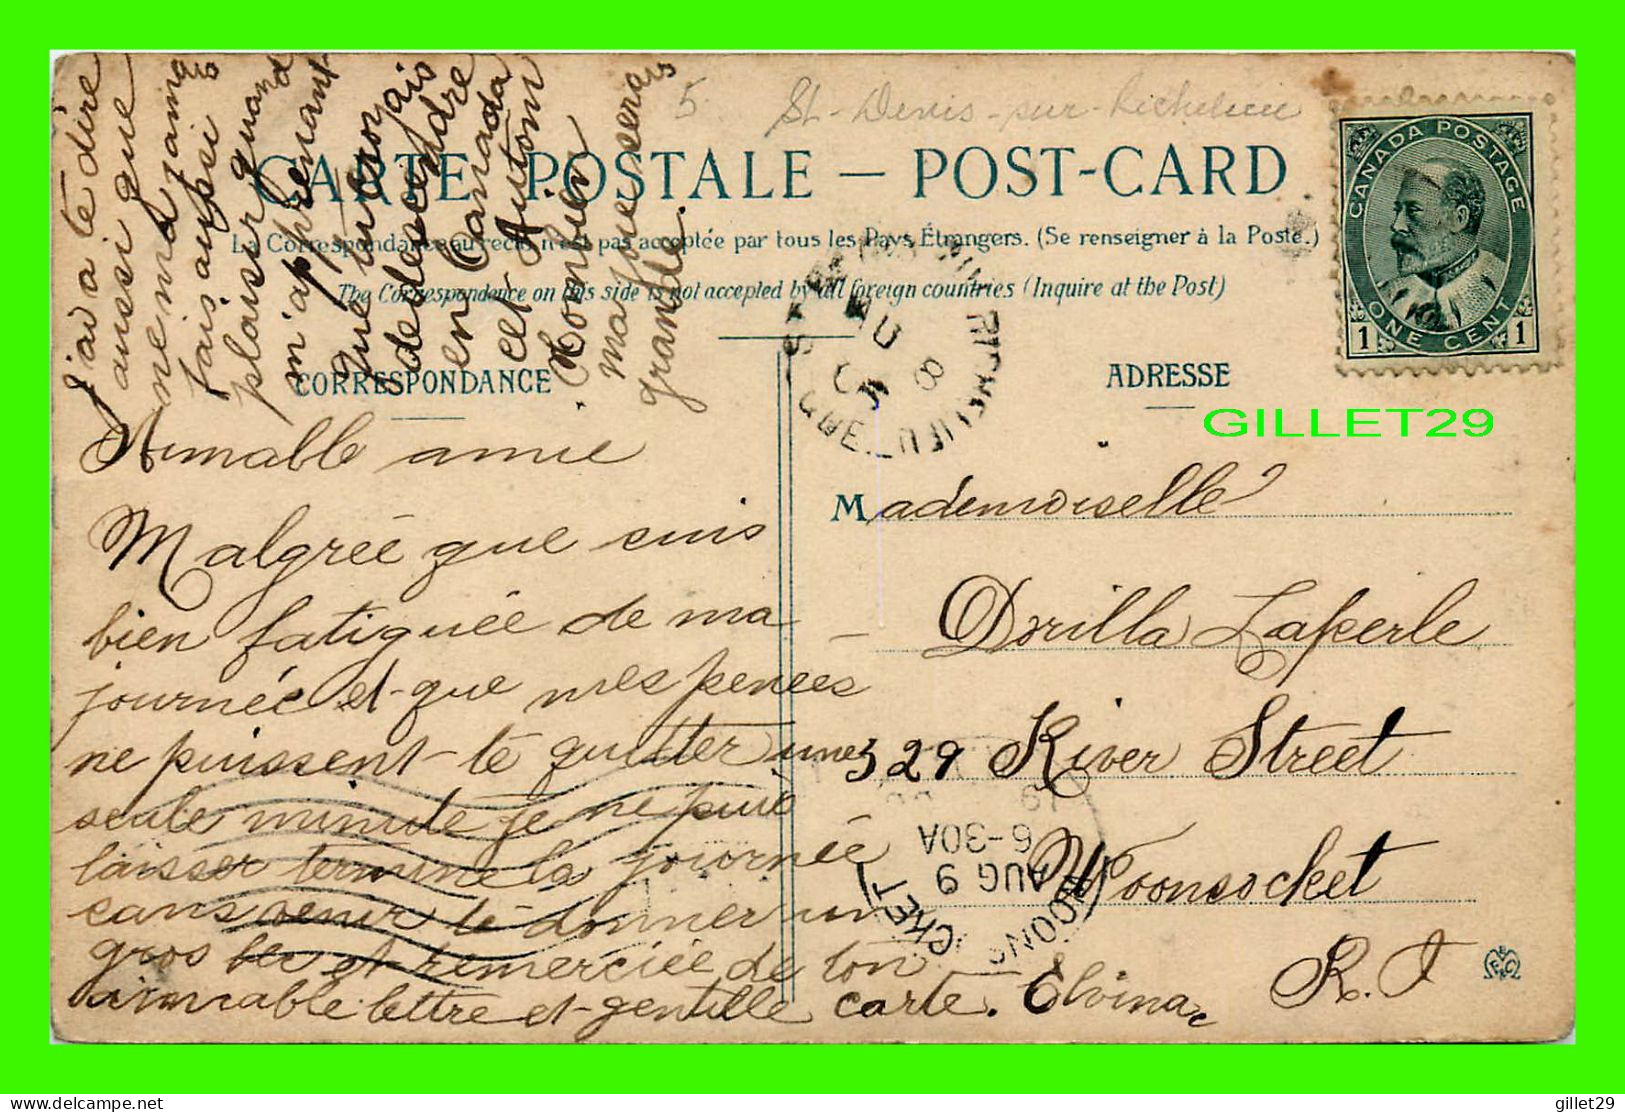 5 St-Denis-sur-Richelieu
CARTE POSTALE — POST-CARD
La Correspondance au recto n'est pas acceptée par tous les Pays Étrangers. (Se renseigner à la Poste.)
The Correspondence on this side is not accepted by all foreign countries (Inquire at the Post)
CORRESPONDANCE
ADRESSE
CANADA POSTAGE
1 ONE CENT 1
GILLET29
J'ai a te dire
aussi que
ne ma jama
fais aussi
plaisir quand
m'apprenant
que tu serais
de descendre
en Canada
cet Automn
Combien
ma joie serais
grande.
Aimable amie
Malgrée que suis
bien fatiguée de ma
journée et que mes pensées
ne puissent te quitter une
seule minute je ne puis
laisser terminé la journée
sans venir te donner un
gros bec et remerciée de ton
aimable lettre et gentille carte. Elvina
AU 8
RICHELIEU
QUE.
Mademoiselle
Dorilla Laperle
329 River Street
Woonsocket
R. I
AUG 9
6-30A
gillet29